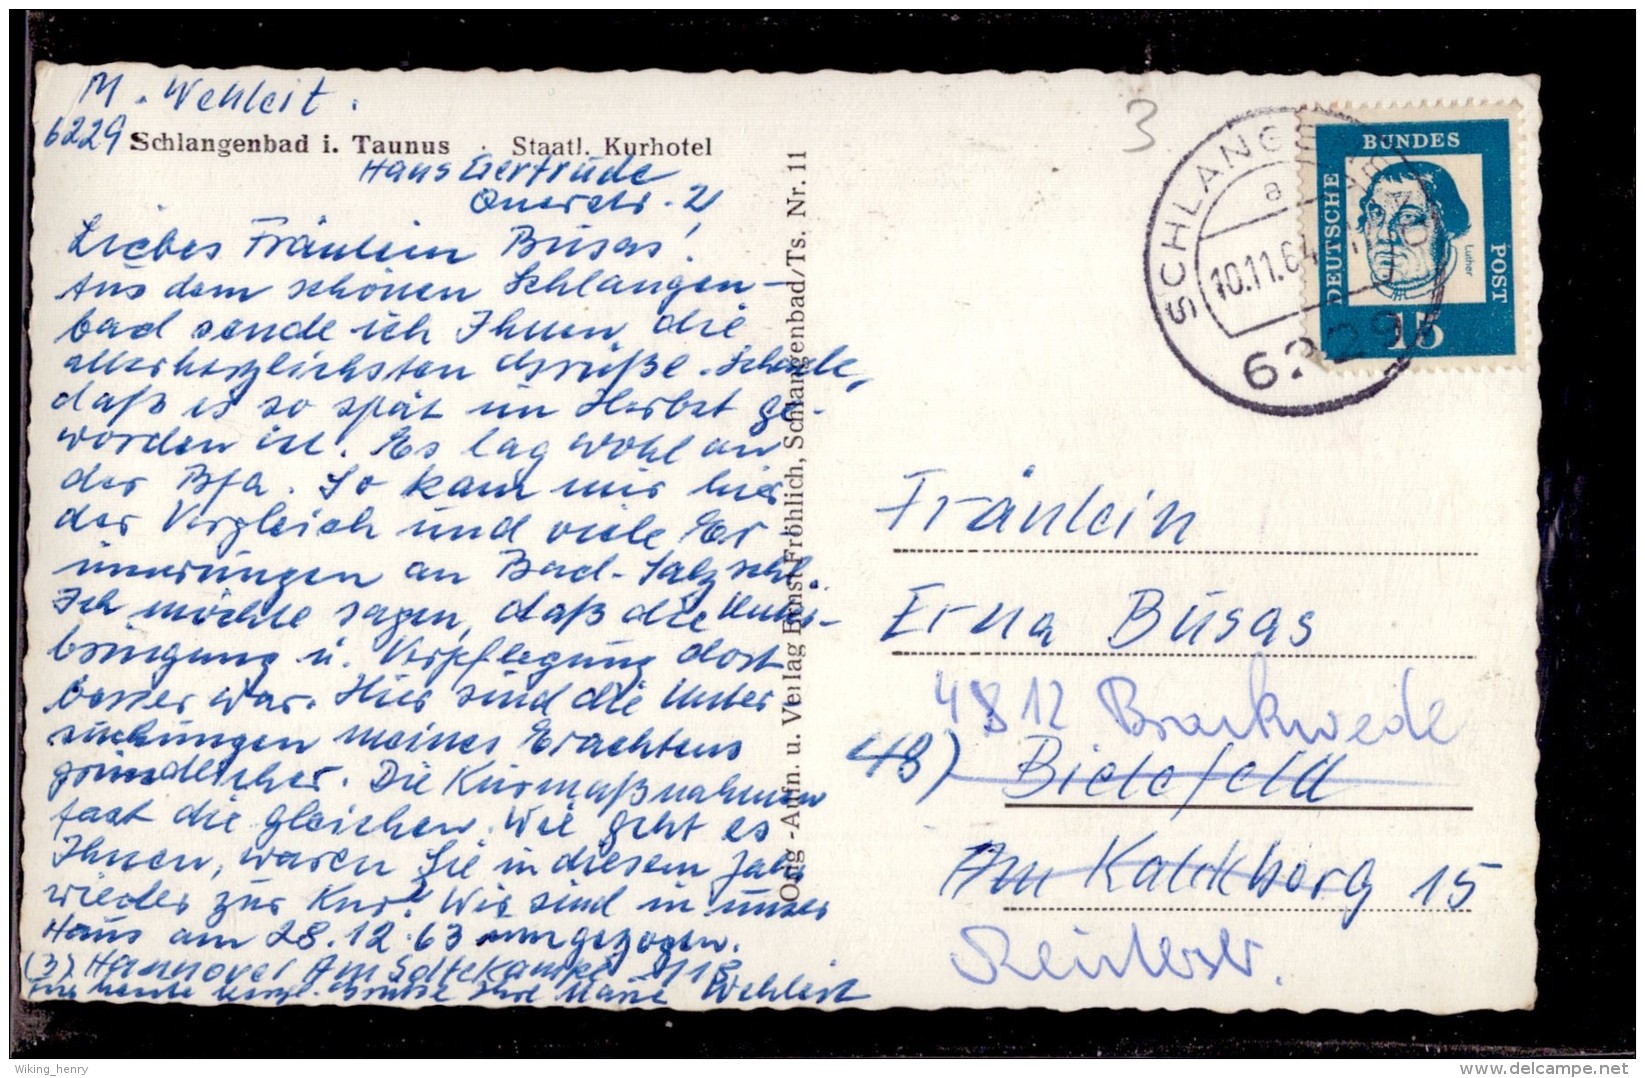 M. Wehleit.
6229 Schlangenbad i. Taunus . Staatl. Kurhotel
Haus Gertrude
Querstr. 21
Liebes Fräulein Busas!
Aus dem schönen Schlangen-
bad sende ich Ihnen die
allerherzlichsten Grüße. Schade,
daß es so spät im Herbst ge-
worden ist. Es lag wohl an
der Bfa. So kam mir hier
der Vergleich und viele Er
innerungen an Bad-Salzschl.
Ich möchte sagen, daß die Unter-
bringung u. Verpflegung dort
besser war. Hier sind die Unter
suchungen meines Erachtens
gründlicher. Die Kurmaßnahmen
fast die gleichen. Wie geht es
Ihnen, waren Sie in diesem Jahr
wieder zur Kur? Wir sind in unser
Haus am 28.12.63 umgezogen.
(3) Hannover Am
Für heute herzl. Grüsse Ihre Wehleit
Orig.-Aufn. u. Verlag Ernst Fröhlich, Schlangenbad/Ts. Nr. 11
3
SCHLANGENBAD
a
10.11.64
6229
BUNDES
DEUTSCHE
POST
Luther
15
Fräulein
Erna Busas
4812 Brackwede
48) Bielefeld
Am Kalkberg 15
Reuterstr.
Wiking_henry
delcampe.net